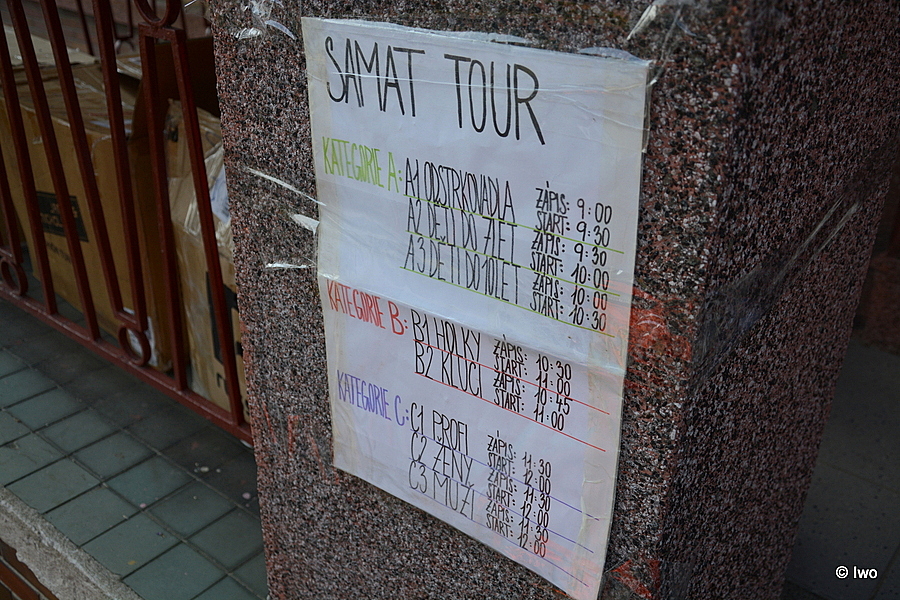 SAMAT TOUR
KATEGORIE A: A1 ODSTRKOVADLA ZÁPIS: 9:00
START: 9:30
A2 DĚTI DO 7 LET ZÁPIS: 9:30
START: 10:00
A3 DĚTI DO 10 LET ZÁPIS: 10:00
START: 10:30
KATEGORIE B: B1 HOLKY ZÁPIS: 10:30
START: 11:00
B2 KLUCI ZÁPIS: 10:45
START: 11:00
KATEGORIE C: C1 PROFI ZÁPIS: 11:30
START: 12:00
C2 ŽENY ZÁPIS: 11:30
START: 12:00
C3 MUŽI ZÁPIS: 11:30
START: 12:00
© Iwo